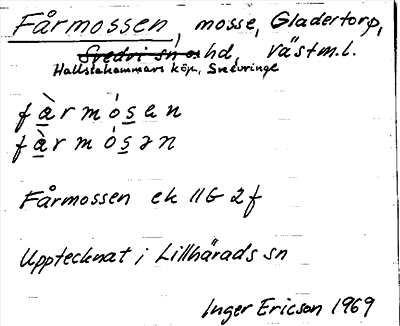 Fårmossen, mosse, Gladertorp,
Svedvi sn o hd, Västm.l.
Hallstahammars köp, Snevringe
fàrmósen
fàrmósən
Fårmossen ek 11G 2f
Upptecknat i Lillhärads sn
Inger Ericson 1969